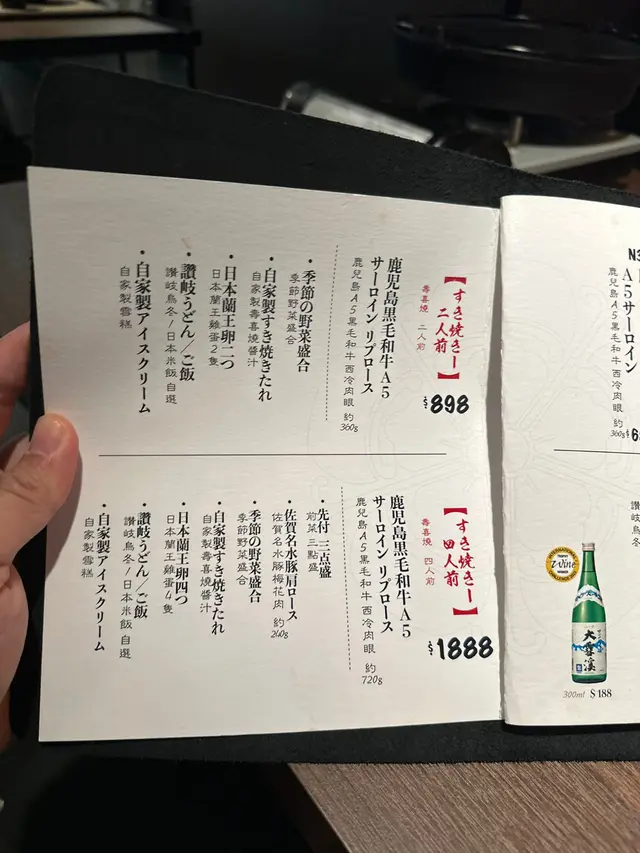 【すき焼きー
二人前】
壽喜燒 二人前
$898
鹿児島黒毛和牛A5
サーロイン リブロース
鹿兒島A5黑毛和牛西冷肉眼 約
360g
・季節の野菜盛合
季節野菜盛合
・自家製すき焼きたれ
自家製壽喜燒醬汁
・日本蘭王卵二つ
日本蘭王雞蛋2隻
・讃岐うどん／ご飯
讚岐烏冬/日本米飯自選
・自家製アイスクリーム
自家製雪糕
【すき焼きー
四人前】
壽喜燒 四人前
$1888
鹿児島黒毛和牛A5
サーロイン リブロース
鹿兒島A5黑毛和牛西冷肉眼 約
720g
・先付 三点盛
前菜三點盛
・佐賀名水豚肩ロース
佐賀名水豚梅花肉 約
260g
・季節の野菜盛合
季節野菜盛合
・自家製すき焼きたれ
自家製壽喜燒醬汁
・日本蘭王卵四つ
日本蘭王雞蛋4隻
・讃岐うどん／ご飯
讚岐烏冬/日本米飯自選
・自家製アイスクリーム
自家製雪糕
A5サーロイン
鹿兒島A5黑毛和牛西冷肉眼 約
360g
讚岐烏冬
Wine
大雪渓
300ml $188